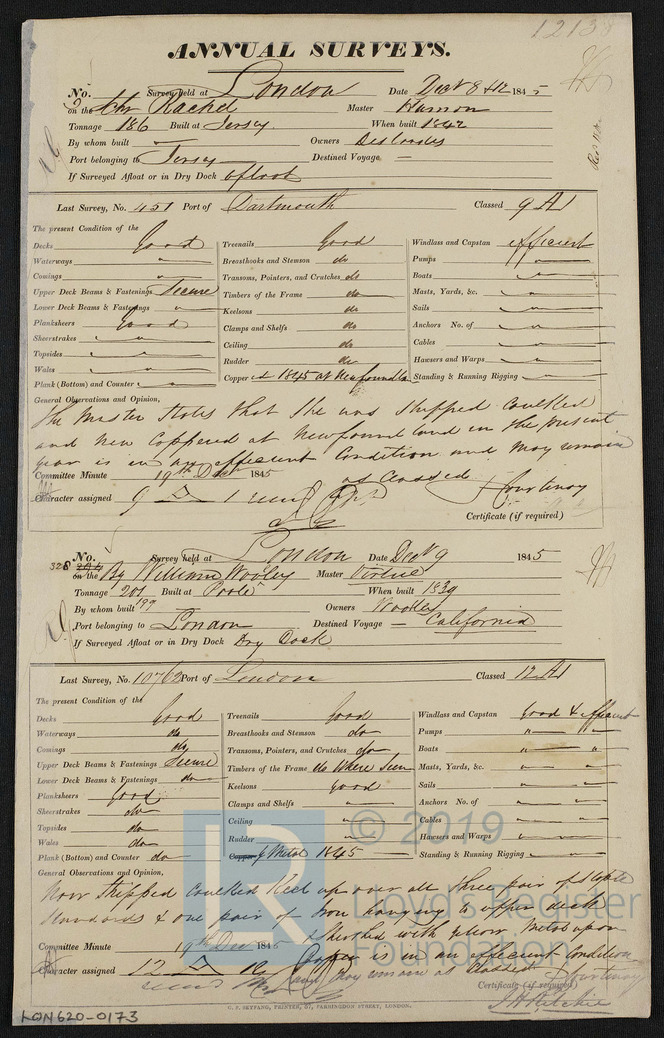 ANNUAL SURVEYS.
No. Survey held at London Date Decr 8 1845
on the Rachel Master Hamon
Tonnage 186 Built at Jersey When built 1842
By whom built Owners Deslandes
Port belonging to Jersey Destined Voyage —
If Surveyed Afloat or in Dry Dock afloat
Last Survey, No. 451 Port of Dartmouth Classed 9 A1
The present Condition of the
Decks Good Treenails Good Windlass and Capstan efficient
Waterways " Breasthooks and Stemson do Pumps "
Comings " Transoms, Pointers, and Crutches do Boats "
Upper Deck Beams & Fastenings Secure Timbers of the Frame do Masts, Yards, &c. "
Lower Deck Beams & Fastenings " Keelsons do Sails "
Planksheers Good Clamps and Shelfs do Anchors No. of "
Sheerstrakes " Ceiling do Cables "
Topsides " Rudder do Hawsers and Warps "
Wales " Copper 1845 at Newfoundland Standing & Running Rigging "
Plank (Bottom) and Counter "
General Observations and Opinion,
The Master States that She was Stripped Caulked
and new Coppered at Newfoundland in the present
year is in an efficient Condition and may remain
as Classed
Committee Minute 19th Decr 1845
Character assigned 9 A 1 Courtenay
Certificate (if required)
No. Survey held at London Date Decr 9 1845
328 on the Bg William Wooley Master Virtue
Tonnage 201 Built at Poole When built 1839
By whom built 199 Owners Wooley
Port belonging to London Destined Voyage — California
If Surveyed Afloat or in Dry Dock Dry Dock
Last Survey, No. 10762 Port of London Classed 12 A1
The present Condition of the
Decks Good Treenails Good Windlass and Capstan Good & efficient
Waterways do Breasthooks and Stemson do Pumps " "
Comings do Transoms, Pointers, and Crutches do Boats " "
Upper Deck Beams & Fastenings Secure Timbers of the Frame do Where Seen Masts, Yards, &c. "
Lower Deck Beams & Fastenings do Keelsons Good Sails "
Planksheers Good Clamps and Shelfs " Anchors No. of "
Sheerstrakes do Ceiling " Cables "
Topsides do Rudder " Hawsers and Warps "
Wales do Copper y Metal 1845 Standing & Running Rigging "
Plank (Bottom) and Counter do
General Observations and Opinion,
Now Stripped Caulked Keel up over all three pair of Staple
Standards & one pair of Iron hanging to upper deck
& Sheathed with yellow Metal upon
Committee Minute 19th Dec 1845
Copper is in an efficient Condition
Character assigned 12 A and may remain as Classed Courtenay
Certificate (if required)
J H Ritchie
C. F. SEYFANG, PRINTER, 57, FARRINGDON STREET, LONDON.
LON620-0173
© 2019
Lloyd's Register
Foundation